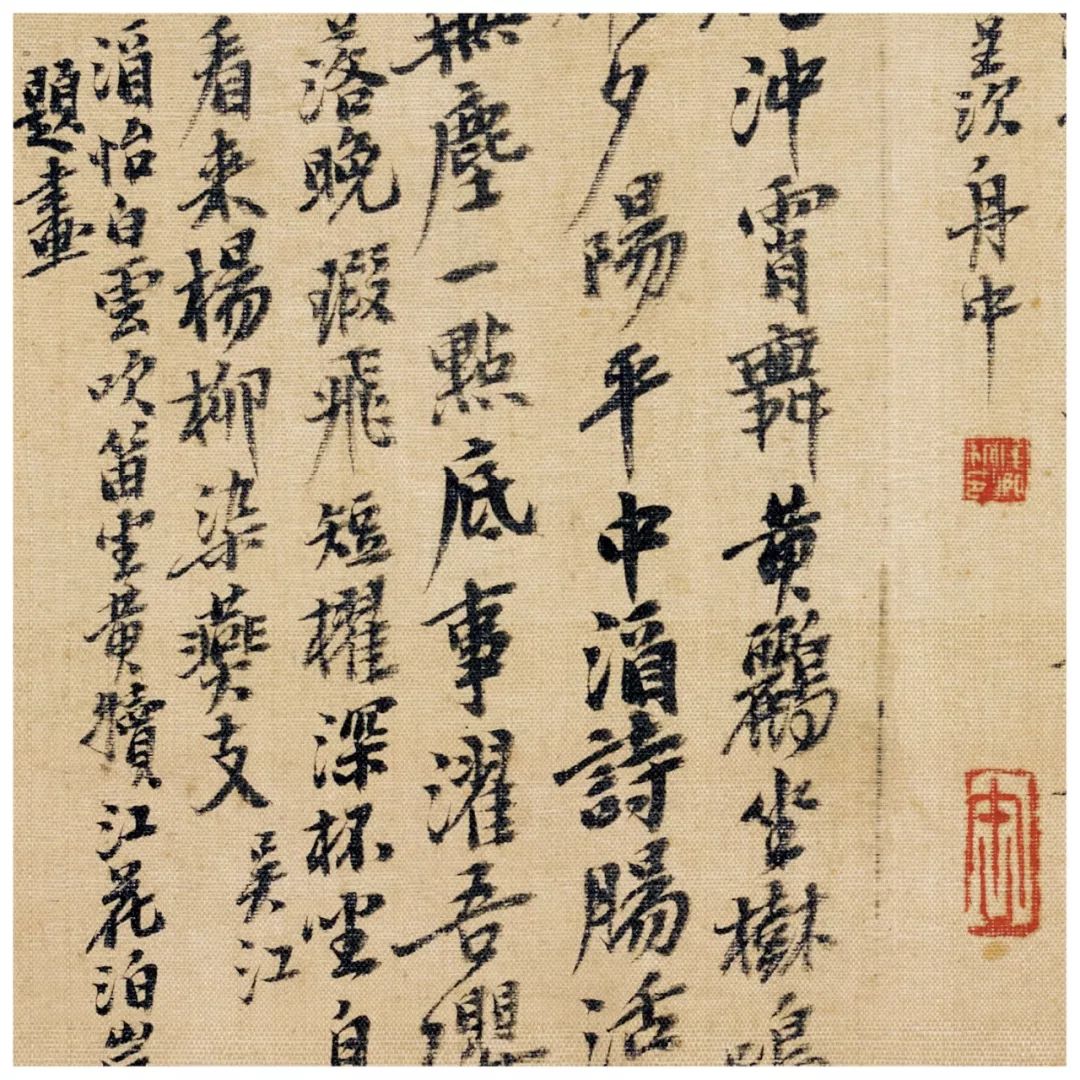 呈次舟中
沖霄舞黃鸝坐樹鳴
夕陽平中涓詩腸活
無塵一點底事濯吾纓
落晚瑕飛短櫂深杯坐自
看来楊柳染燕支
吴江
涓怡白雲吹笛坐黃犢江花泊岸
題畫